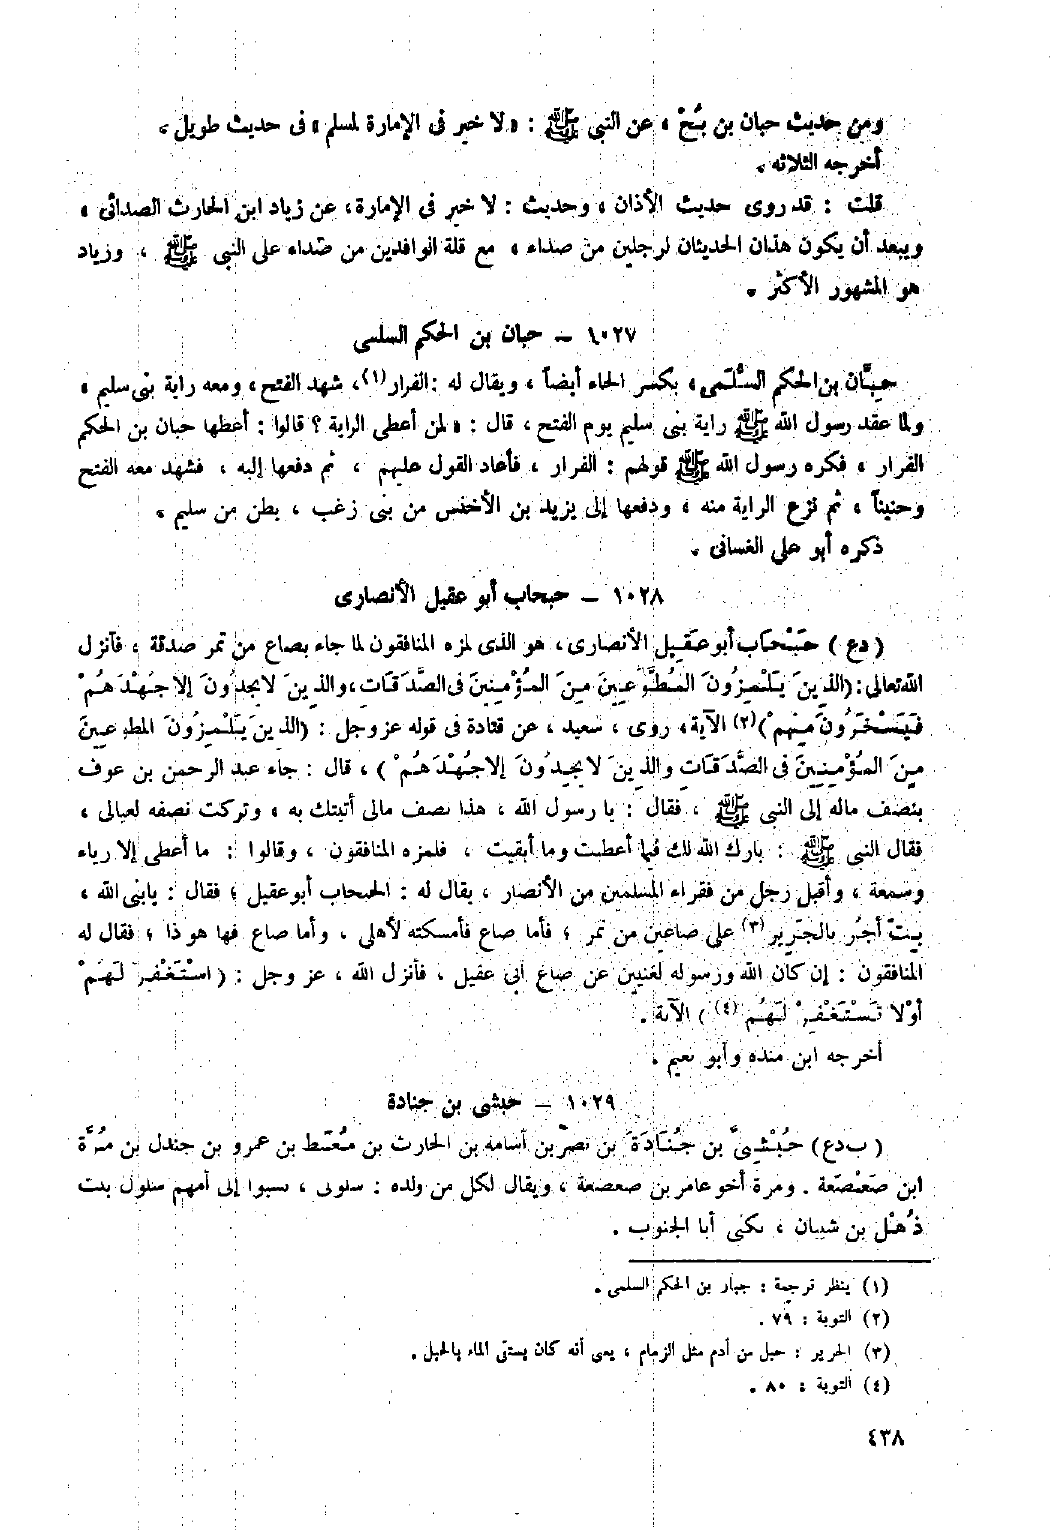 ومن حديث حبان بن بُحّ ، عن النبي ﷺ : « لا خير فى الإمارة لمسلم » فى حديث طويل .
أخرجه الثلاثه .
قلت : قد روى حديث الأذان ، وحديث : لا خير فى الإمارة ، عن زياد ابن الحارث الصدائى ،
ويبعد أن يكون هذان الحديثان لرجلين من صداء ، مع قلة الوافدين من صُداء على النبى ﷺ ، وزياد
هو المشهور الأكثر .
١٠٢٧ – حبان بن الحكم السلمى
حِبَّان بن الحكم السُّلَمى ، بكسر الحاء أيضاً ، ويقال له : الفرار (١) ، شهد الفتح ، ومعه راية بنى سليم ،
ولما عقد رسول الله ﷺ راية بنى سليم يوم الفتح ، قال : « لمن أعطى الراية ؟ قالوا : أعطها حبان بن الحكم
الفرار ، فكره رسول الله ﷺ قولهم : الفرار ، فأعاد القول عليهم ، ثم دفعها إليه ، فشهد معه الفتح
وحنيناً ، ثم نزع الراية منه ، ودفعها إلى يزيد بن الأخنس من بنى زغب ، بطن من سليم .
ذكره أبو على الغسانى .
١٠٢٨ – حبحاب أبو عقيل الأنصارى
( دع ) حَبْحَاب أبو عَقِيل الأنصارى ، هو الذى لمزه المنافقون لما جاء بصاع من تمر صدقة ، فأنزل
الله تعالى : (الذِينَ يَلْمِزُونَ المُطَّوِّعِينَ مِنَ المُؤْمِنِينَ فى الصَّدَقَاتِ ، والذِينَ لا يجدُونَ إلا جُهْدَهُمْ
فَيَسْخَرُونَ مِنهمْ) (٢) الآية ، روى ، سعيد ، عن قتادة فى قوله عز وجل : (الذينَ يَلْمِزُونَ المطوعينَ
مِنَ المُؤْمِنِينَ فى الصَّدَقَاتِ والذِينَ لا يجِدُونَ إلا جُهْدَهُمْ ) ، قال : جاء عبد الرحمن بن عوف
بنصف ماله إلى النبى ﷺ ، فقال : يا رسول الله ، هذا نصف مالى أتيتك به ، وتركت نصفه لعيالى ،
فقال النبى ﷺ : بارك الله لك فيما أعطيت وما أبقيت ، فلمزه المنافقون ، وقالوا : ما أعطى إلا رياء
وسمعة ، وأقبل رجل من فقراء المسلمين من الأنصار ، يقال له : الحبحاب أبو عقيل ؛ فقال : يا نبى الله ،
بِتّ أجُرّ بالجَرِير (٣) على صاعين من تمر ؛ فأما صاع فأمسكته لأهلى ، وأما صاع فها هو ذا ؛ فقال له
المنافقون : إن كان الله ورسوله لغنيين عن صاع أبى عقيل ، فأنزل الله ، عز وجل : ( اسْتَغْفِرْ لَهمْ
أوْلا تَسْتَغْفِرْ لَهُم (٤) ) الآية .
أخرجه ابن منده وأبو نعيم .
١٠٢٩ – حبشى بن جنادة
( ب دع ) حُبْشِىّ بن جُنَادَةَ بن نصر بن أسامه بن الحارث بن مُعَيْط بن عمرو بن جندل بن مُرَّة
ابن صَعْصَعة . ومرة أخو عامر بن صعصعة ، ويقال لكل من ولده : سلولى ، نسبوا إلى أمهم سلول بنت
ذُهْل بن شيبان ، يكنى أبا الجنوب .
(١) ينظر ترجمة : جبار بن الحكم السلمى .
(٢) التوبة : ٧٩ .
(٣) الجرير : حبل من أدم مثل الزمام ، يعنى أنه كان يستقى الماء بالحبل .
(٤) التوبة : ٨٠ .
٤٣٨